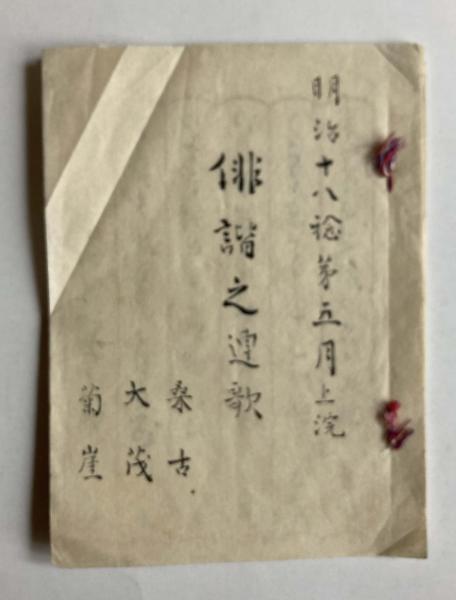 明治十八稔第五月上浣
俳諧之連歌
桑古
大茂
菊崖